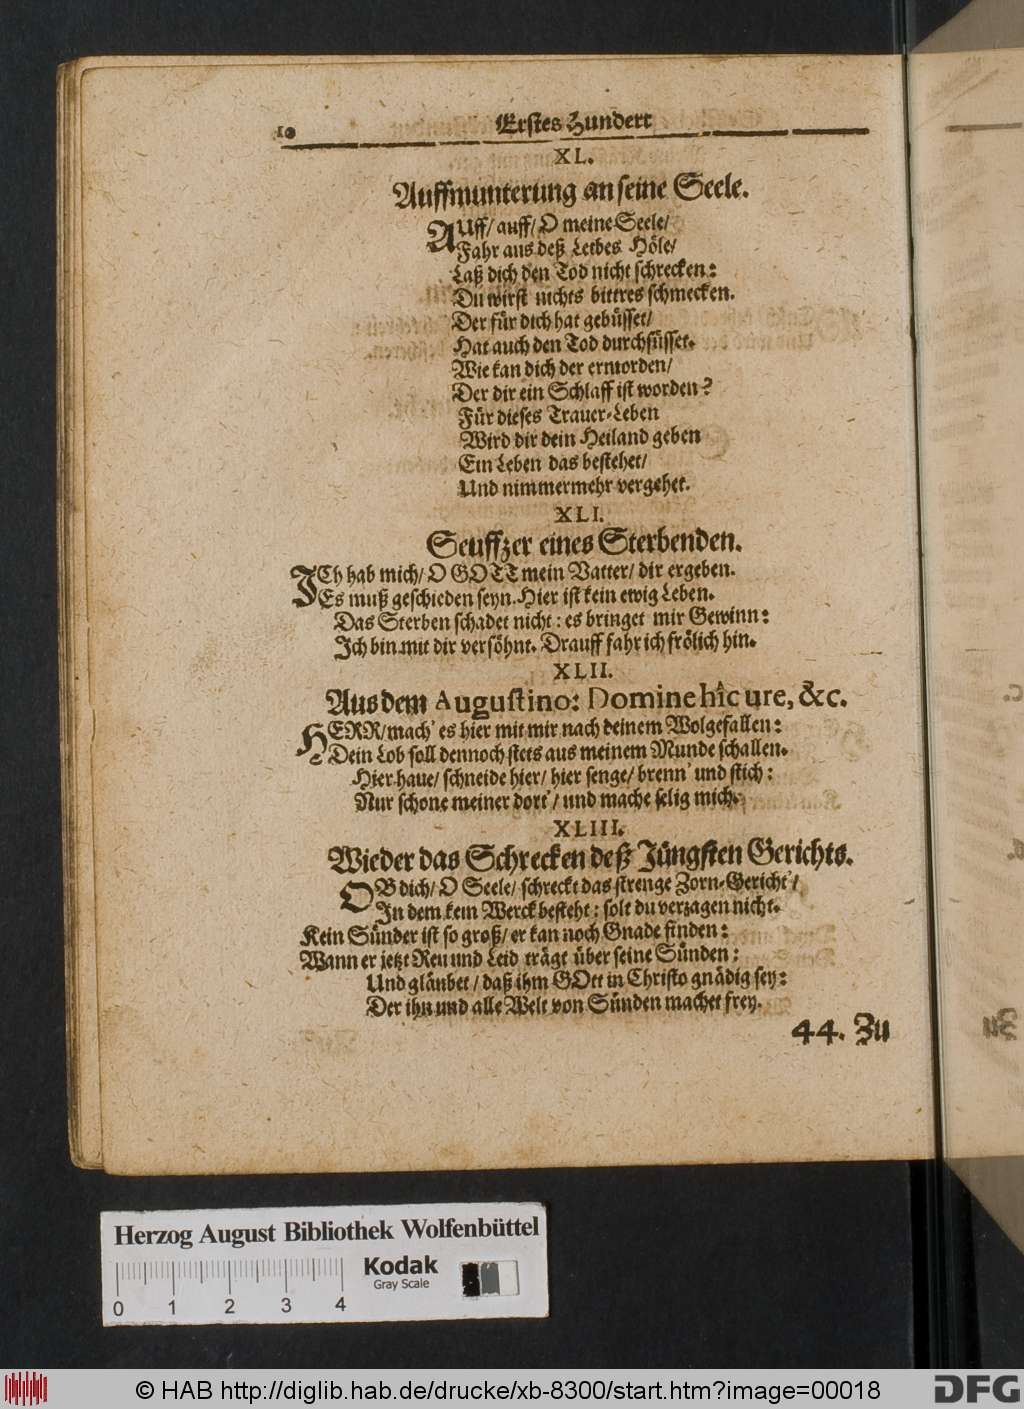 10
Erstes Hundert
XL.
Auffmunterung an seine Seele.
AUff/ auff/ O meine Seele/
Fahr aus deß Leibes Höle/
Laß dich den Tod nicht schrecken:
Du wirst nichts bittres schmecken.
Der für dich hat gebüsset/
Hat auch den Tod durchsüsset.
Wie kan dich der ermorden/
Der dir ein Schlaff ist worden?
Für dieses Trauer-Leben
Wird dir dein Heiland geben
Ein Leben das bestehet/
Und nimmermehr vergehet.
XLI.
Seuffzer eines Sterbenden.
ICh hab mich/ O GOTT mein Vatter/ dir ergeben.
Es muß geschieden seyn. Hier ist kein ewig Leben.
Das Sterben schadet nicht: es bringet mir Gewinn:
Ich bin mit dir versöhnt. Drauff fahr ich frölich hin.
XLII.
Aus dem Augustino: Domine hîc ure, &c.
HERR/ mach' es hier mit mir nach deinem Wolgefallen:
Dein Lob soll dennoch stets aus meinem Munde schallen.
Hier haue/ schneide hier/ hier senge/ brenn' und stich:
Nur schone meiner dort'/ und mache selig mich.
XLIII.
Wieder das Schrecken deß Jüngsten Gerichts.
OB dich/ O Seele/ schreckt das strenge Zorn-Gericht'/
In dem kein Werck besteht: solt du verzagen nicht.
Kein Sünder ist so groß/ er kan noch Gnade finden:
Wann er jetzt Reu und Leid trägt über seine Sünden:
Und gläubet/ daß ihm GOtt in Christo gnädig sey:
Der ihn und alle Welt von Sünden machet frey.
44. Zu
Herzog August Bibliothek Wolfenbüttel
Kodak
Gray Scale
0 1 2 3 4
© HAB http://diglib.hab.de/drucke/xb-8300/start.htm?image=00018
DFG